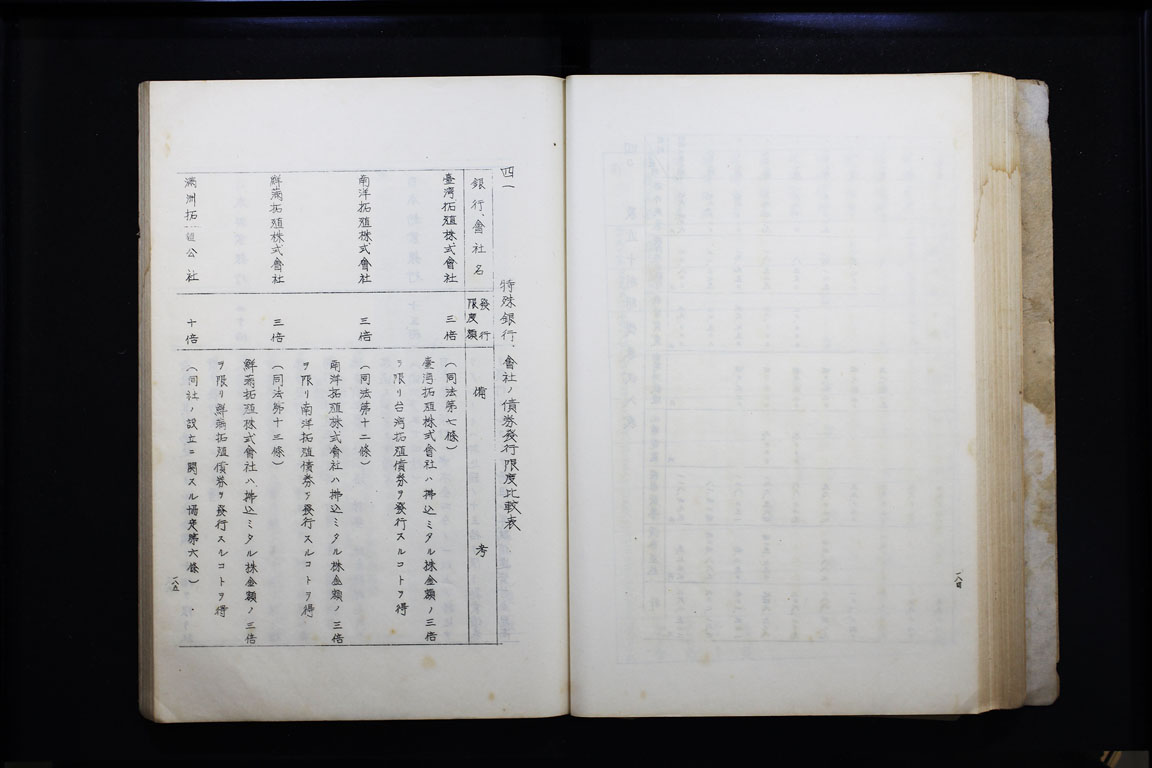 一八四
四一　特殊銀行、會社ノ債券發行限度比較表
銀行、會社名　發行限度額　備考
臺灣拓殖株式會社　三倍　（同法第七條）
臺灣拓殖株式會社ハ拂込ミタル株金額ノ三倍
ヲ限リ台湾拓殖債券ヲ發行スルコトヲ得
南洋拓殖株式會社　三倍　（同法第十二條）
南洋拓殖株式會社ハ拂込ミタル株金額ノ三倍
ヲ限リ南洋拓殖債券ヲ發行スルコトヲ得
鮮滿拓殖株式會社　三倍　（同法第十三條）
鮮滿拓殖株式會社ハ拂込ミタル株金額ノ三倍
ヲ限リ鮮滿拓殖債券ヲ發行スルコトヲ得
滿洲拓殖公社　十倍　（同社ノ設立ニ関スル協定第六條）
一八五